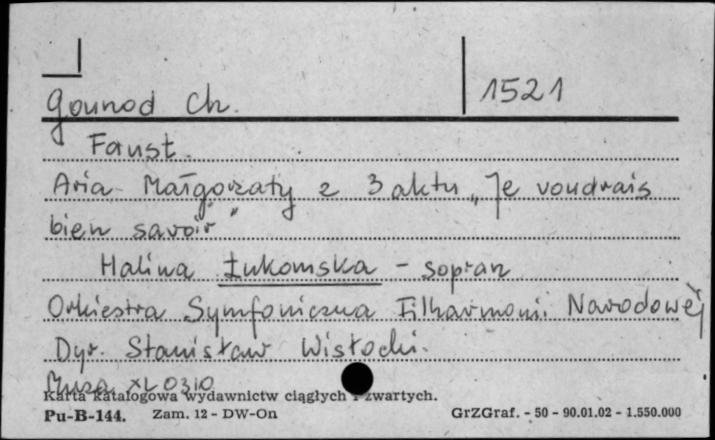 Gounod Ch. 1521
Faust.
Aria Małgorzaty z 3 aktu „Je voudrais
bien savoir"
Halina Łukomska - sopran
Orkiestra Symfoniczna Filharmonii Narodowej
Dyr. Stanisław Wisłocki.
Muza XL 0310
Karta katalogowa wydawnictw ciągłych i zwartych.
Pu-B-144. Zam. 12 - DW-On GrZGraf. - 50 - 90.01.02 - 1.550.000